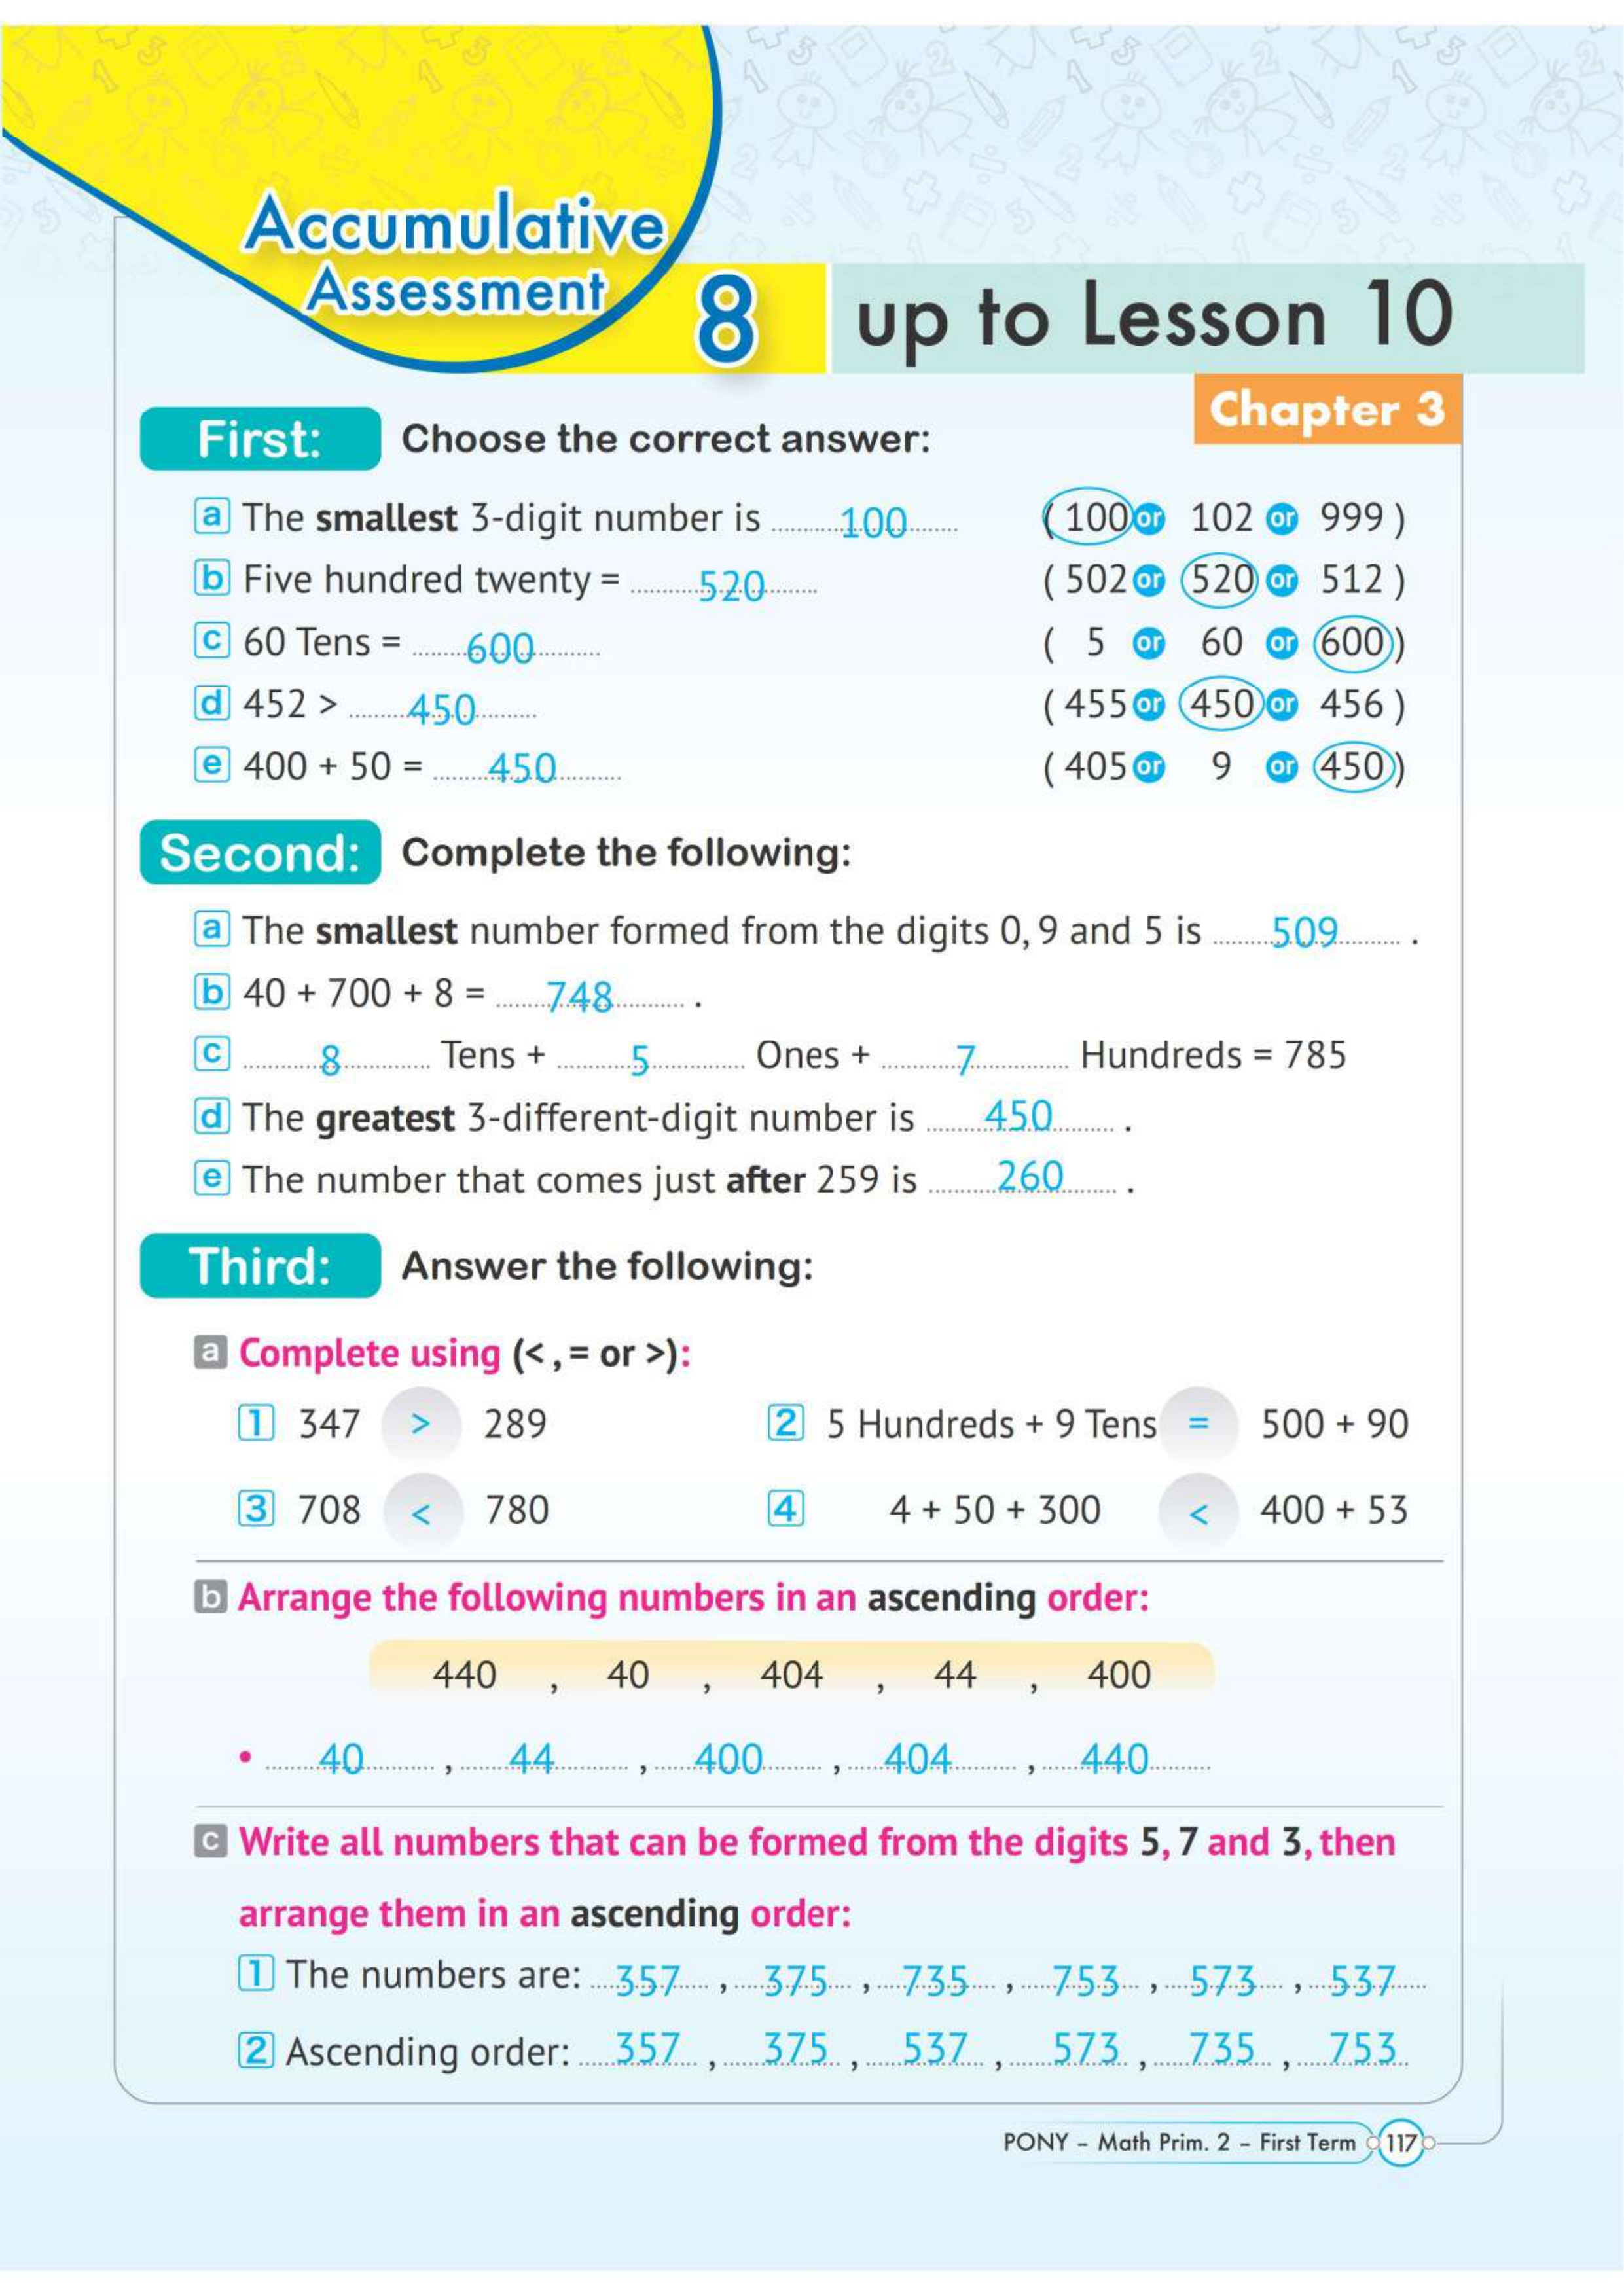 Accumulative
Assessment 8 up to Lesson 10
Chapter 3
First: Choose the correct answer:
a The smallest 3-digit number is 100 ( 100 or 102 or 999 )
b Five hundred twenty = 520 ( 502 or 520 or 512 )
c 60 Tens = 600 ( 5 or 60 or 600 )
d 452 > 450 ( 455 or 450 or 456 )
e 400 + 50 = 450 ( 405 or 9 or 450 )
Second: Complete the following:
a The smallest number formed from the digits 0, 9 and 5 is 509 .
b 40 + 700 + 8 = 748 .
c 8 Tens + 5 Ones + 7 Hundreds = 785
d The greatest 3-different-digit number is 450 .
e The number that comes just after 259 is 260 .
Third: Answer the following:
a Complete using (< , = or >):
1 347 > 289 2 5 Hundreds + 9 Tens = 500 + 90
3 708 < 780 4 4 + 50 + 300 < 400 + 53
b Arrange the following numbers in an ascending order:
440 , 40 , 404 , 44 , 400
• 40 , 44 , 400 , 404 , 440
c Write all numbers that can be formed from the digits 5, 7 and 3, then
arrange them in an ascending order:
1 The numbers are: 357 , 375 , 735 , 753 , 573 , 537
2 Ascending order: 357 , 375 , 537 , 573 , 735 , 753
PONY – Math Prim. 2 – First Term 117